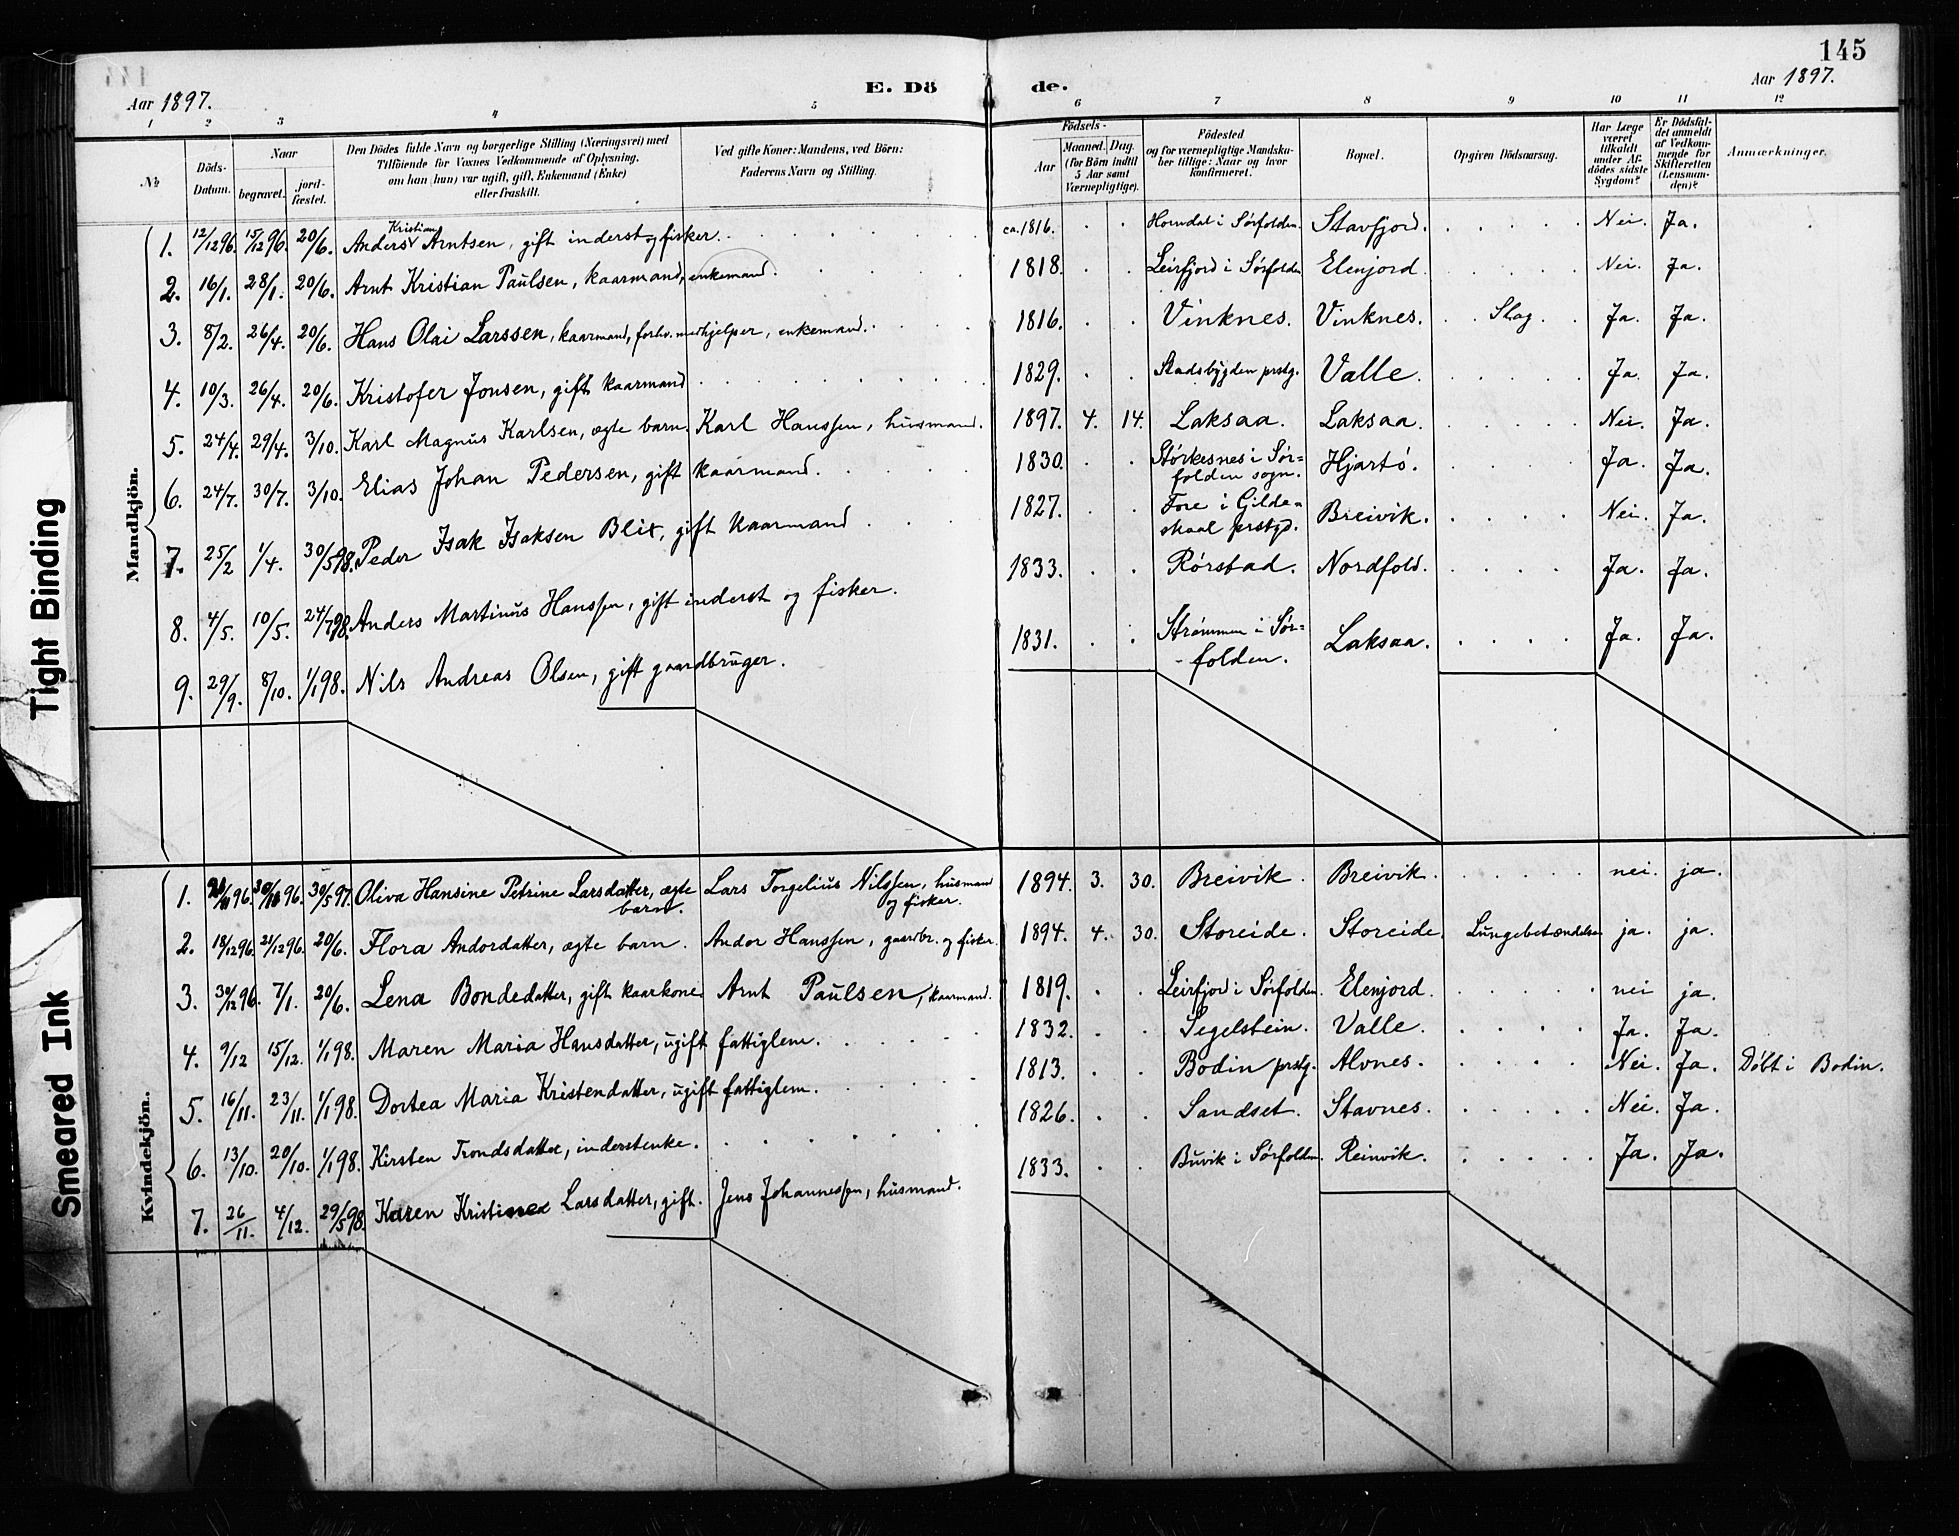 145
Aar 1897. E. Dö de. Aar 1897.
1 2 3 4 5 6 7 8 9 10 11 12
No
Döds-Datum.
Naar
begravet.
jord-fæstet.
Den Dödes fulde Navn og borgerlige Stilling (Næringsvei) med
Tilföiende for Voxnes Vedkommende af Oplysning,
om han (hun) var ugift, gift, Enkemand (Enke)
eller fraskilt.
Ved gifte Koner: Mandens, ved Börn:
Faderens Navn og Stilling.
Födsels-
Aar
Maaned. Dag.
(for Börn indtil
5 Aar samt
Værnepligtige).
Födested
og for værnepligtige Mandska-
ber tillige: Naar og hvor
konfirmeret.
Bopæl.
Opgiven Dödsaarsag.
Har Læge
været
tilkaldt
under Af-
dödes sidste
Sygdom?
Er Dödsfal-
det anmeldt
af Vedkom-
mende for
Skifteretten
(Lensman-
den)?
Anmærkninger.
Mandkjön.
1. 12/12 96. 15/12 96. 20/6. Anders Kristian Arntsen, gift inderst og fisker. ca. 1816. Horndal i Sørfolden. Stavfjord. Nei. Ja.
2. 16/1. 28/1. 20/6. Arnt Kristian Paulsen, kaarmand, enkemand. 1818. Leirfjord i Sørfolden Elenjord. Nei. Ja.
3. 8/2. 26/4. 20/6. Hans Olai Larssen, kaarmand, forhv. medhjelper, enkemand. 1816. Vinknes. Vinknes. Slag. Ja. Ja.
4. 10/3. 26/4. 20/6. Kristofer Jonsen, gift kaarmand 1829. Stadsbygden prstg. Valle. Ja. Ja.
5. 24/4. 29/4. 3/10. Karl Magnus Karlsen, ægte barn. Karl Hanssen, husmand. 1897. 4. 14. Laksaa. Laksaa. Nei. Ja.
6. 24/7. 30/7. 3/10. Elias Johan Pedersen, gift kaarmand. 1830. Størkesnes i Sør=
folden sogn. Hjartø. Ja. Ja.
7. 25/2 1/4. 30/5 98. Peder Isak Isaksen Blix, gift kaarmand 1827. Fore i Gilde=
skaal prstgd. Breivik. Nei. Ja.
8. 4/5. 10/5. 24/7 98. Anders Martinus Hanssen, gift inderst og fisker. 1833. Rørstad. Nordfold. Ja. Ja.
9. 29/9. 8/10. 1/1 98. Nils Andreas Olsen, gift gaardbruger. 1831. Strømmen i Sør=
folden. Laksaa. Ja. Ja.
Kvindekjön.
1. 96. 96. 30/5 97. Oliva Hansine Petrine Larsdatter, ægte
barn. Lars Torgelius Nilssen, husmand
og fisker. 1894. 3. 30. Breivik. Breivik. nei. ja.
2. 18/12 96. 21/12 96. 20/6. Flora Andordatter, ægte barn. Andor Hanssen, gaardbr. og fisker. 1894. 4. 30. Storeide. Storeide. Lungebetændelse ja. ja.
3. 30/12 96. 7/1. 20/6. Lena Bondedatter, gift kaarkone Arnt Paulsen, kaarmand. 1819. Leirfjord i Sørfolden. Elenjord. nei ja.
4. 9/12 15/12. 1/1 98. Maren Maria Hansdatter, ugift fattiglem. 1832. Segelstein. Valle. Ja. Ja.
5. 16/11. 23/11. 1/1 98. Dortea Maria Kristendatter, ugift fattiglem. 1813. Bodin prstg. Alvnes. Nei. Ja. Døbt i Bodin.
6. 13/10. 20/10. 1/1 98. Kirsten Trondsdatter, inderstenke. 1826. Sandset. Stavnes. Nei. Ja.
7. 26/11. 4/12. 29/5 98. Karen Larsdatter, gift. Jens Johannessen, husmand. 1833. Buvik i Sørfolden. Reinvik. Ja. Ja.
Tight Binding
Smeared Ink